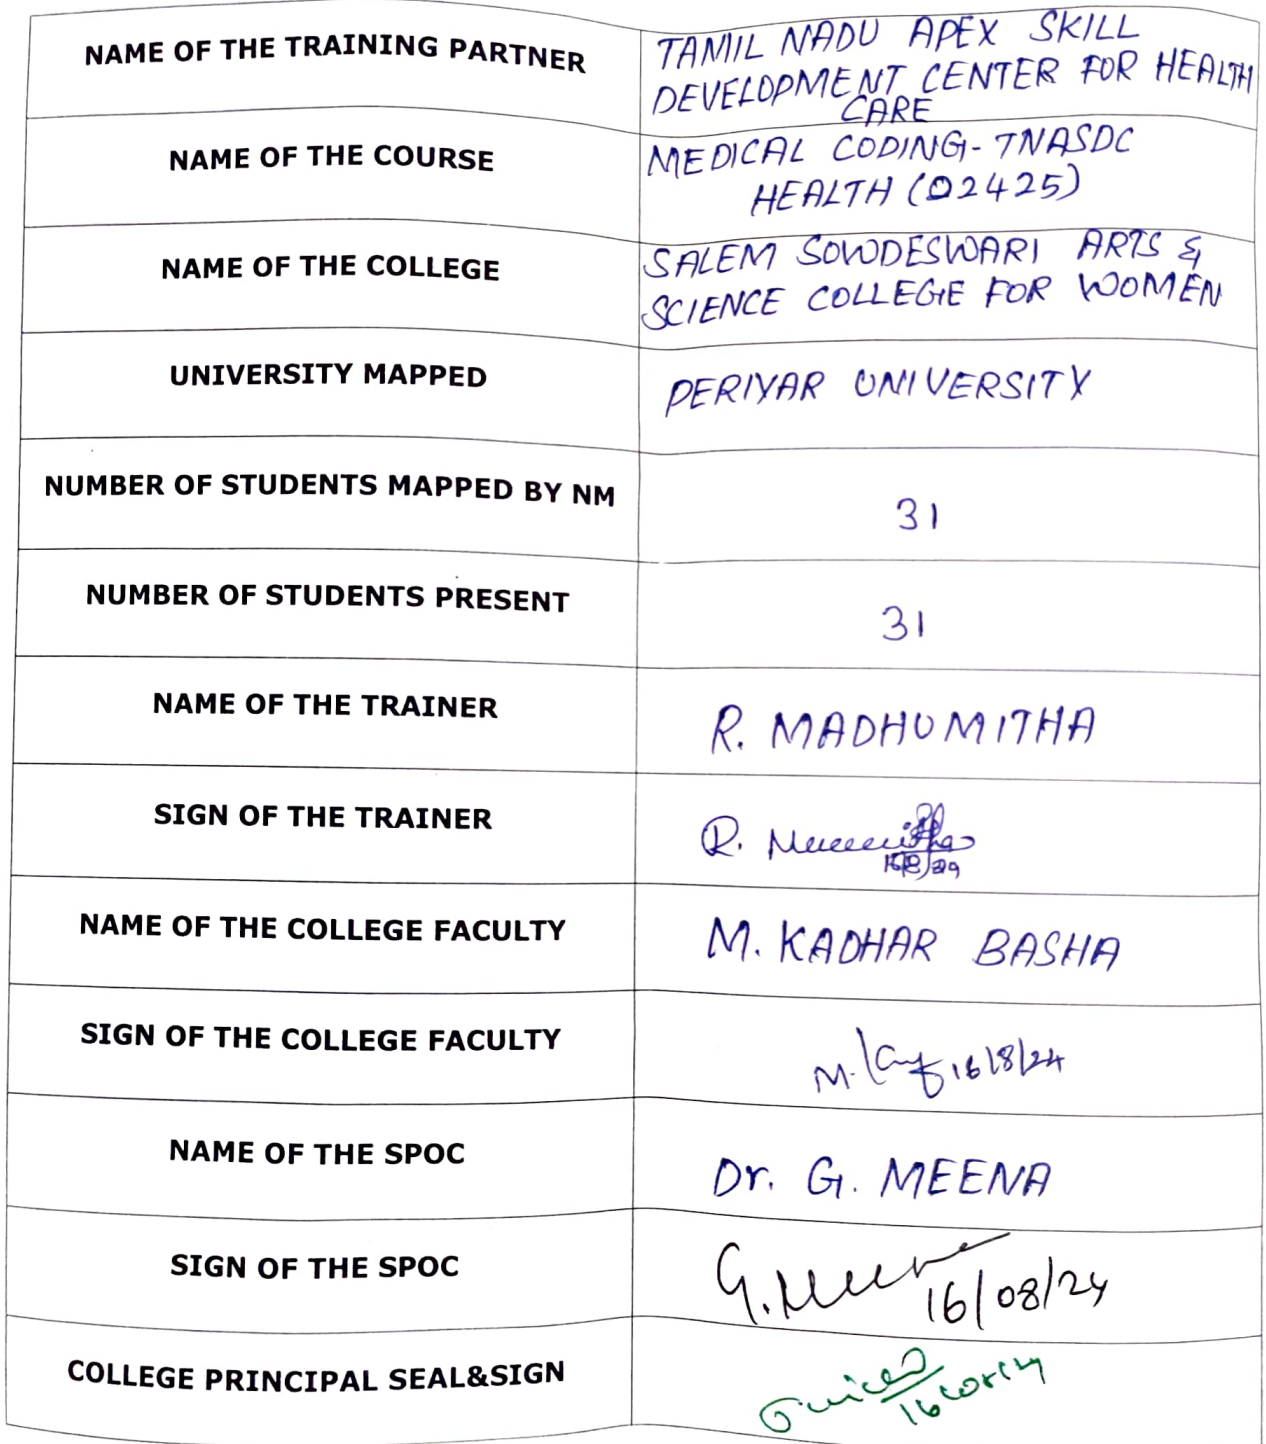 NAME OF THE TRAINING PARTNER
TAMIL NADU APEX SKILL
DEVELOPMENT CENTER FOR HEALTH
CARE
NAME OF THE COURSE
MEDICAL CODING-TNASDC
HEALTH (02425)
NAME OF THE COLLEGE
SALEM SOWDESWARI ARTS &
SCIENCE COLLEGE FOR WOMEN
UNIVERSITY MAPPED
PERIYAR UNIVERSITY
NUMBER OF STUDENTS MAPPED BY NM
31
NUMBER OF STUDENTS PRESENT
31
NAME OF THE TRAINER
R. MADHUMITHA
SIGN OF THE TRAINER
R.
NAME OF THE COLLEGE FACULTY
M. KADHAR BASHA
SIGN OF THE COLLEGE FACULTY
M. 16/8/24
NAME OF THE SPOC
Dr. G. MEENA
SIGN OF THE SPOC
G. Meena 16/08/24
COLLEGE PRINCIPAL SEAL&SIGN